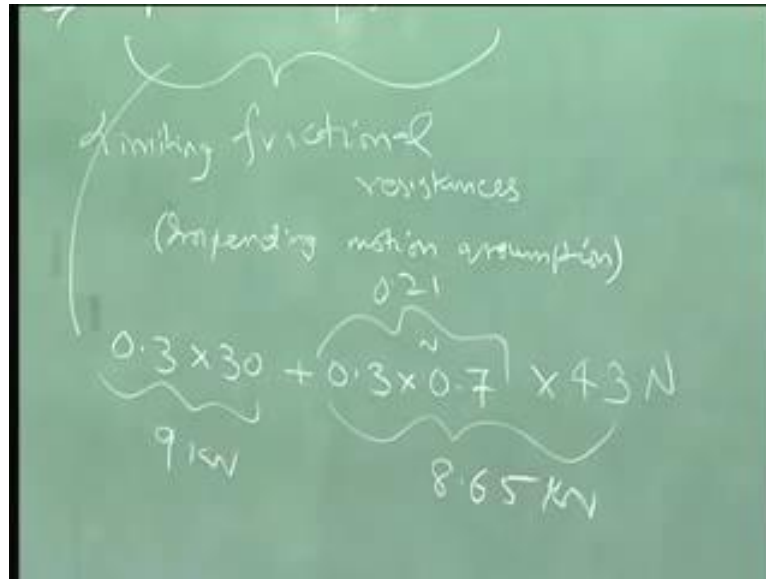 Limiting frictional
resistances
(Impending motion assumption)
0.21
0.3 x 30 + 0.3 x 0.7 x 43 N
9 KN
8.65 KN